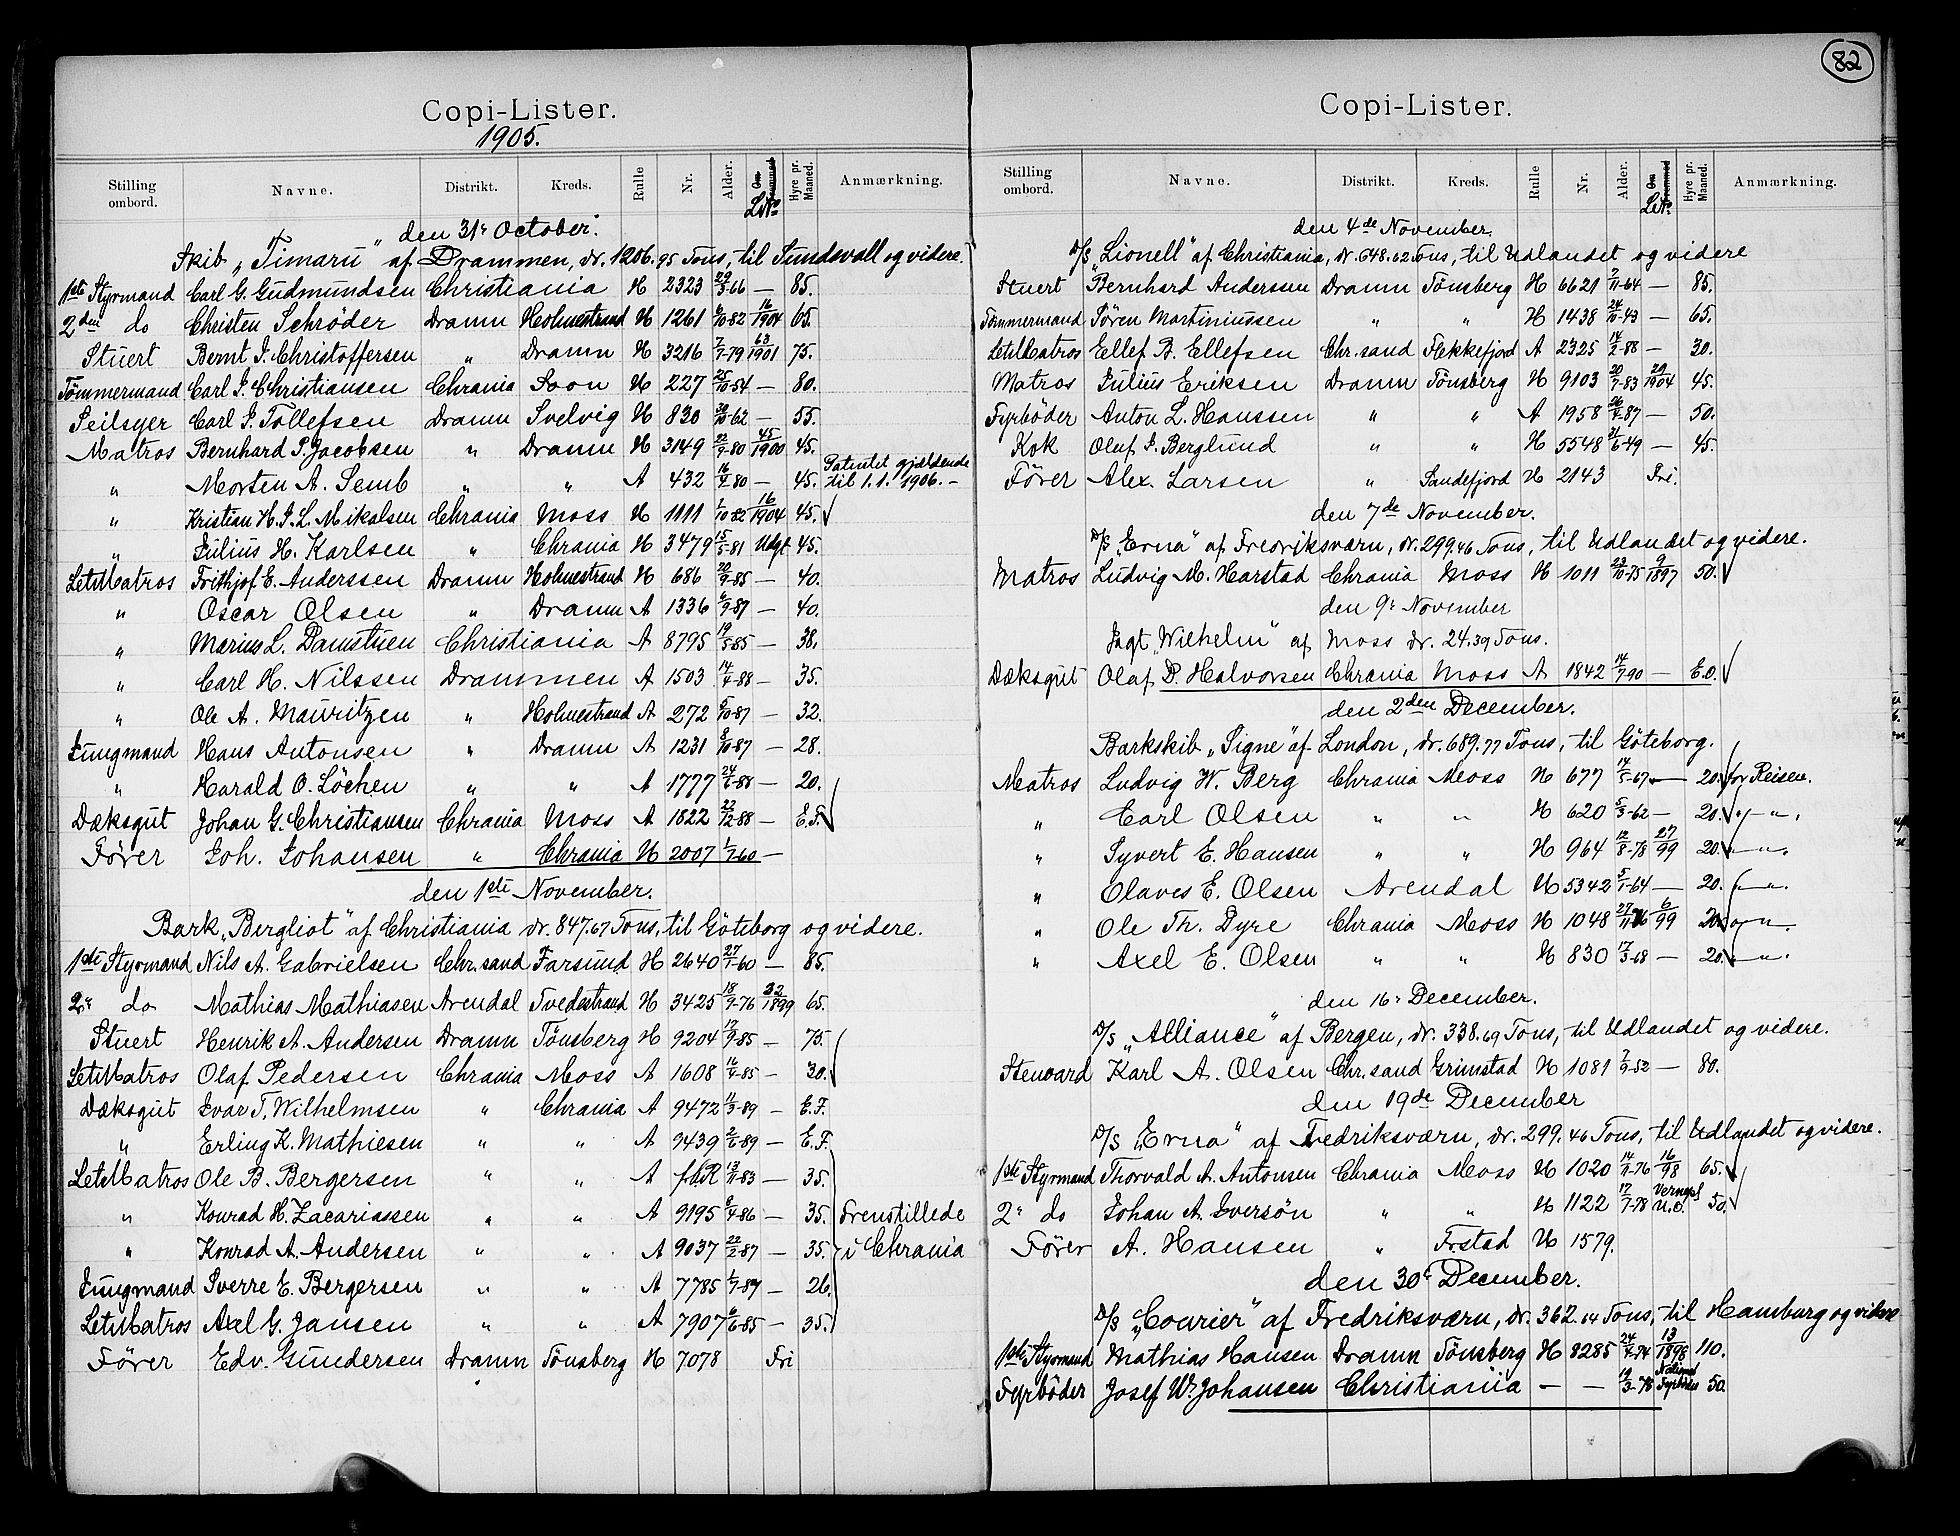 Copi-Lister.
1905.
Stilling ombord. Navne. Distrikt. Kreds. Rulle Nr. Alder. Hyre pr. Maaned. Anmærkning.
den 31. October.
Skib „Timaru" af Drammen, dr. 1206.95 Tons, til Sundsvall og videre.
1ste Styrmand Carl G. Gudmundsen Christiania H 2323 29/3-66 — 85.
2den do Christen Schröder Dramn Holmestrand H 1261 /10-82 16/1904 65.
Stuert Bernt J. Christoffersen „ Dramn H 3216 7/7-79 63/1901 75.
Tömmermand Carl J. Christiansen Chrania Soon H 227 25/10-54 — 80.
Seilsyer Carl J. Tollefsen Dramn Svelvig H 830 20/10-62 — 55.
Matros Bernhard P. Jacobsen „ Dramn H 3149 22/9-80 45/1900 45.
„ Morten A. Semb „ „ A 432 16/4-80 — 45. Patentet gjældende til 1.1.1906.-
„ Kristian H. J. L. Mikalsen Chrania Moss H 1111 1/10-82 16/1904 45.
„ Julius H. Karlsen „ Chrania H 3479 15/5-81 Udgt 45.
LetMatros Frithjof E. Anderssen Dramn Holmestrand H 686 20/9-85 — 40.
„ Oscar Olsen „ Dramn A 1336 6/9-87 — 40.
„ Marius L. Damstuen Christiania A 8795 19/5-85 — 38.
„ Carl H. Nilssen Drammen A 1503 14/4-88 — 35.
„ Ole A. Mauritzen „ Holmestrand A 272 5/10-87 — 32.
Jungmand Hans Antonsen „ Dramn A 1231 8/10-87 — 28.
„ Harald O. Löchen „ „ A 1777 24/6-88 — 20.
Dæksgut Johan G. Christiansen Chrania Moss A 1822 22/12-88 — E.F.
Förer Joh. Johansen „ Chrania H 2007 1/7-60 —
den 1ste November.
Bark „Bergliot" af Christiania dr. 847.67 Tons, til Göteborg og videre.
1ste Styrmand Nils A. Gabrielsen Chr.sand Farsund H 2640 27/1-60 — 85.
2. do Mathias Mathiasen Arendal Tvedestrand H 3425 18/9-76 32/1899 65.
Stuert Henrik A. Andersen Dramn Tönsberg H 9204 17/9-85 — 75.
LetMatros Olaf Pedersen Chrania Moss A 1608 16/4-85 — 30.
Dæksgut Ivar T. Wilhelmsen „ Chrania A 9472 11/3-89 — E.F.
„ Erling K. Mathiesen „ „ A 9439 2/6-89 — E.F.
LetMatros Ole B. Bergersen „ „ A 13/11-83 — 35.
„ Konrad H. Zacariassen „ „ A 9195 8/4-86 — 35. Frenstillede
„ Konrad A. Andersen „ „ A 9037 22/2-87 — 35. i Chrania
Jungmand Sverre E. Bergersen „ „ A 7785 1/7-87 — 26.
LetMatros Axel G. Jansen „ „ A 7907 6/6-85 — 35.
Förer Edv. Gundersen Dramn Tönsberg H 7078 Fri
82
Copi-Lister.
Stilling ombord. Navne. Distrikt. Kreds. Rulle Nr. Alder. Hyre pr. Maaned. Anmærkning.
den 4de November.
D/S „Lionell" af Christiania, dr. 648.62 Tons, til Udlandet og videre
Stuert Bernhard Anderssen Dramn Tönsberg H 6621 7/11-64 — 85.
Tömmermand Sören Martiniussen „ „ H 1438 24/10-43 — 65.
LetMatros Ellef B. Ellefsen Chr.sand Flekkefjord A 2325 14/2-88 — 30.
Matros Julius Eriksen Dramn Tönsberg H 9103 20/7-83 29/1904 45.
Fyrböder Anton L. Hanssen „ „ A 1958 26/4-87 — 50.
Kok Oluf J. Berglund „ „ H 5548 21/6-49 — 45.
Förer Alex. Larsen „ Sandefjord H 2143 Fri.
den 7de November.
D/S „Erna" af Fredriksværn, dr. 299.46 Tons, til Udlandet og videre.
Matros Ludvig M. Harstad Chrania Moss H 1011 23/10-75 9/1897 50.
den 9. November
Jagt „Wilhelm" af Moss dr. 24.39 Tons.
Dæksgut Olaf P. Halvorsen Chrania Moss A 1842 14/7-90 — E.O.
den 2den December.
Barkskib „Signe" af London, dr. 689.77 Tons, til Göteborg.
Matros Ludvig W. Berg Chrania Moss H 677 14/5-67 — 20. for Reisen.
„ Carl Olsen „ „ H 620 5/3-62 — 20. „ — „.
„ Syvert E. Hansen „ „ H 964 12/8-78 27/99 20. „ — „.
„ Olaves E. Olsen Arendal H 5342 5/1-64 — 20. — „.
„ Ole Th. Dyre Chrania Moss H 1048 27/11-76 6/99 20. — „ —
„ Axel E. Olsen „ „ H 830 17/3-68 — 20. — „.
den 16. December.
D/S „Alliance" af Bergen, dr. 338.69 Tons, til Udlandet og videre.
Steward Karl A. Olsen Chr.sand Grimstad H 1081 7/9-52 — 80.
den 19de December
D/S „Erna" af Fredriksværn, dr. 299.46 Tons, til Udlandet og videre.
1ste Styrmand Thorvald A. Antonsen Chrania Moss H 1020 14/9-76 16/98 65.
2. do Johan A. Iversön „ „ H 1122 17/7-78 50.
Förer A. Hansen „ Frstad H 1579.
den 30. December.
D/S „Courier" af Fredriksværn, dr. 362.64 Tons, til Hamburg og videre
1ste Styrmand Mathias Hansen Dramn Tönsberg H 8285 24/4-74 13/1898 110.
Fyrböder Josef W. Johansen Christiania — — 19/3-76 Fyrböder 50.